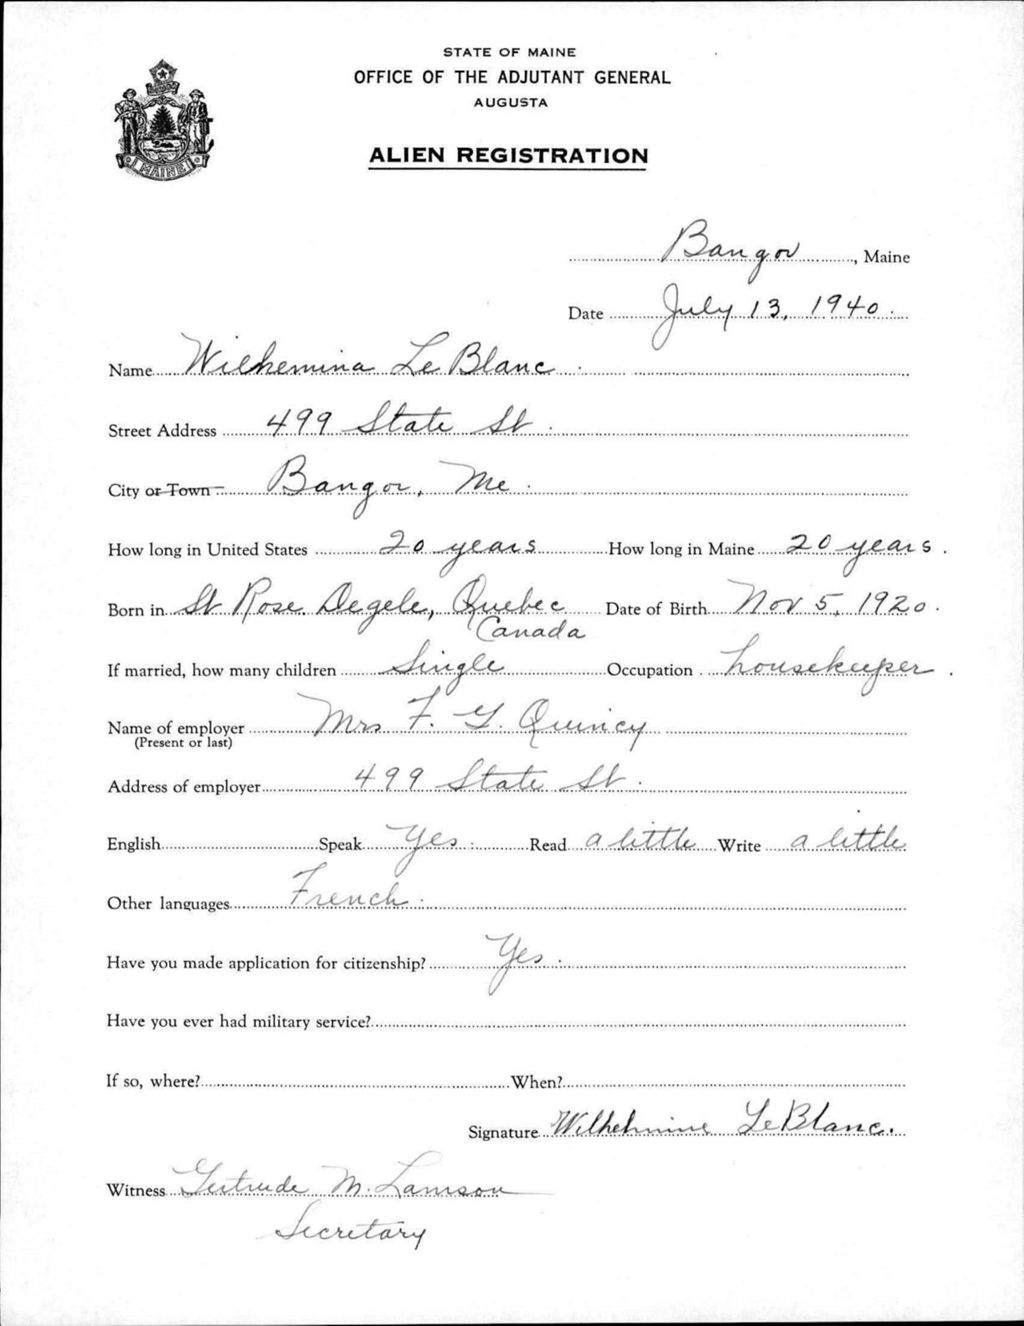 STATE OF MAINE
OFFICE OF THE ADJUTANT GENERAL
AUGUSTA
ALIEN REGISTRATION
MAINE
Bangor, Maine
Date July 13, 1940.
Name Wilhemina Le Blanc
Street Address 499 State St.
City or Town Bangor, Me.
How long in United States 20 years How long in Maine 20 years.
Born in St Rose Degele, Quebec Date of Birth Nov 5, 1920.
Canada
If married, how many children Single Occupation housekeeper.
Name of employer Mrs F. G. Quincy
(Present or last)
Address of employer 499 State St.
English Speak Yes. Read a little Write a little
Other languages French.
Have you made application for citizenship? Yes.
Have you ever had military service?
If so, where? When?
Signature Wilhelmine Le Blanc.
Witness Gertrude M. Lamson
Secretary